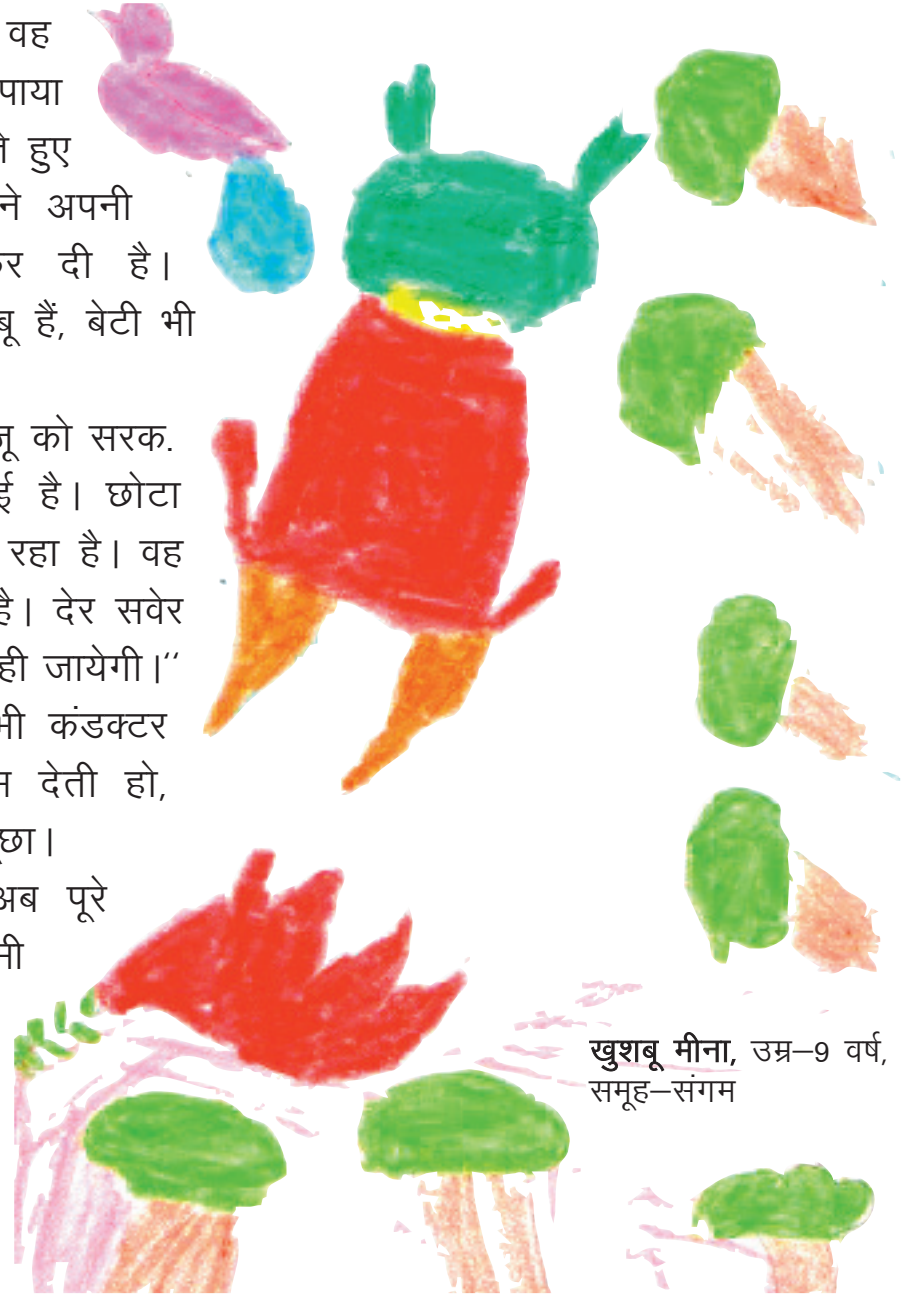 वह
पाया
हुए
ने अपनी
दी है।
हैं, बेटी भी
को सरक.
है। छोटा
रहा है। वह
है। देर सवेर
ही जायेगी।’’
कंडक्टर
देती हो,
अब पूरे
खुशबू मीना, उम्र–9 वर्ष,
समूह–संगम